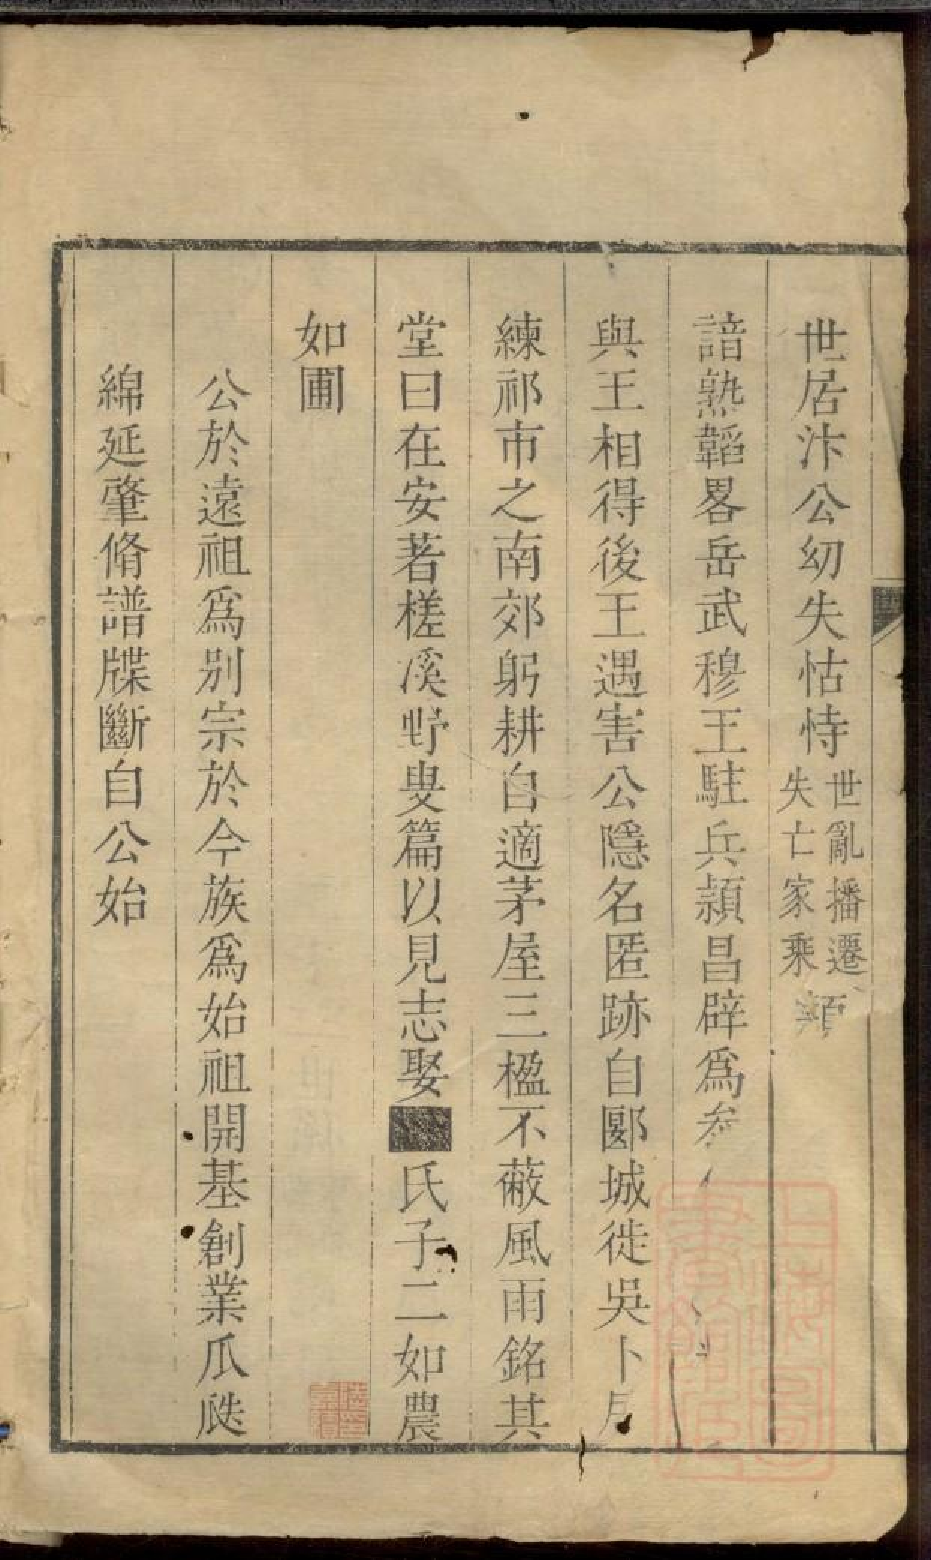 世居汴公幼失怙恃世亂播遷失亡家乘穎
諳熟韜畧岳武穆王駐兵潁昌辟爲參
與王相得後王遇害公隱名匿跡自郾城徙吳卜居
練祁市之南郊躬耕自適茅屋三楹不蔽風雨銘其
堂曰在安著槎溪野叟篇以見志娶氏子二如農
如圃
公於遠祖爲别宗於今族爲始祖開基創業瓜瓞
綿延肇脩譜牒斷自公始